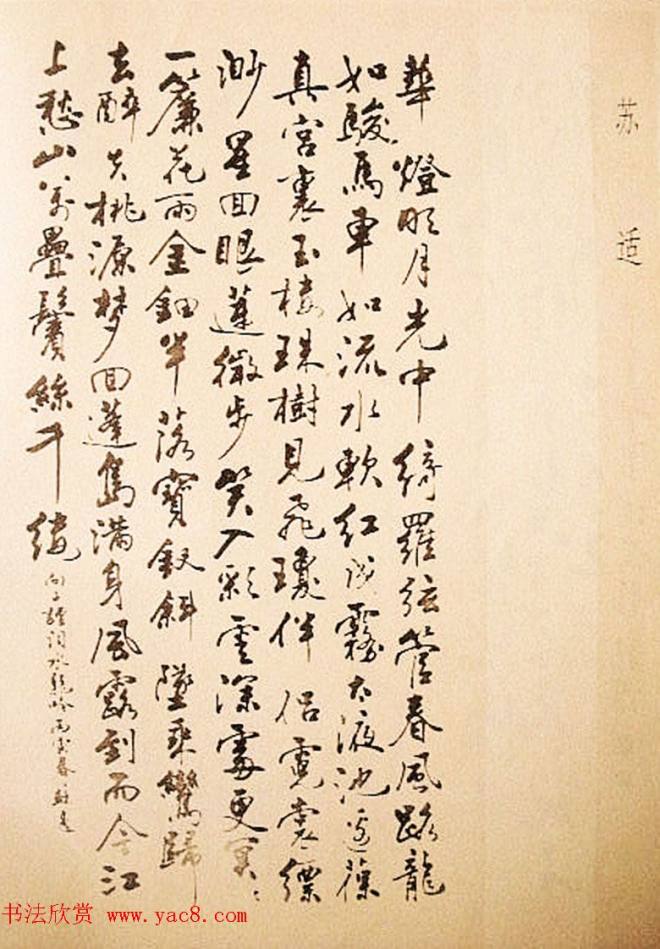 苏适
華燈明月光中綺羅弦管春風路龍
如駿馬車如流水軟紅成霧太液池邊葆
真宮裏玉楼珠樹見飛瓊伴侣霓裳縹
渺星回眼蓮微步笑入彩雲深處更冥〻
一簾花雨金鈿半落寶釵斜墜乘鸞歸
去醉失桃源梦回蓬島满身風露到而今江
上愁山萬疊鬢絲千縷
向子諲詞水龍吟丙戌春蘇适
书法欣赏 www.yac8.com